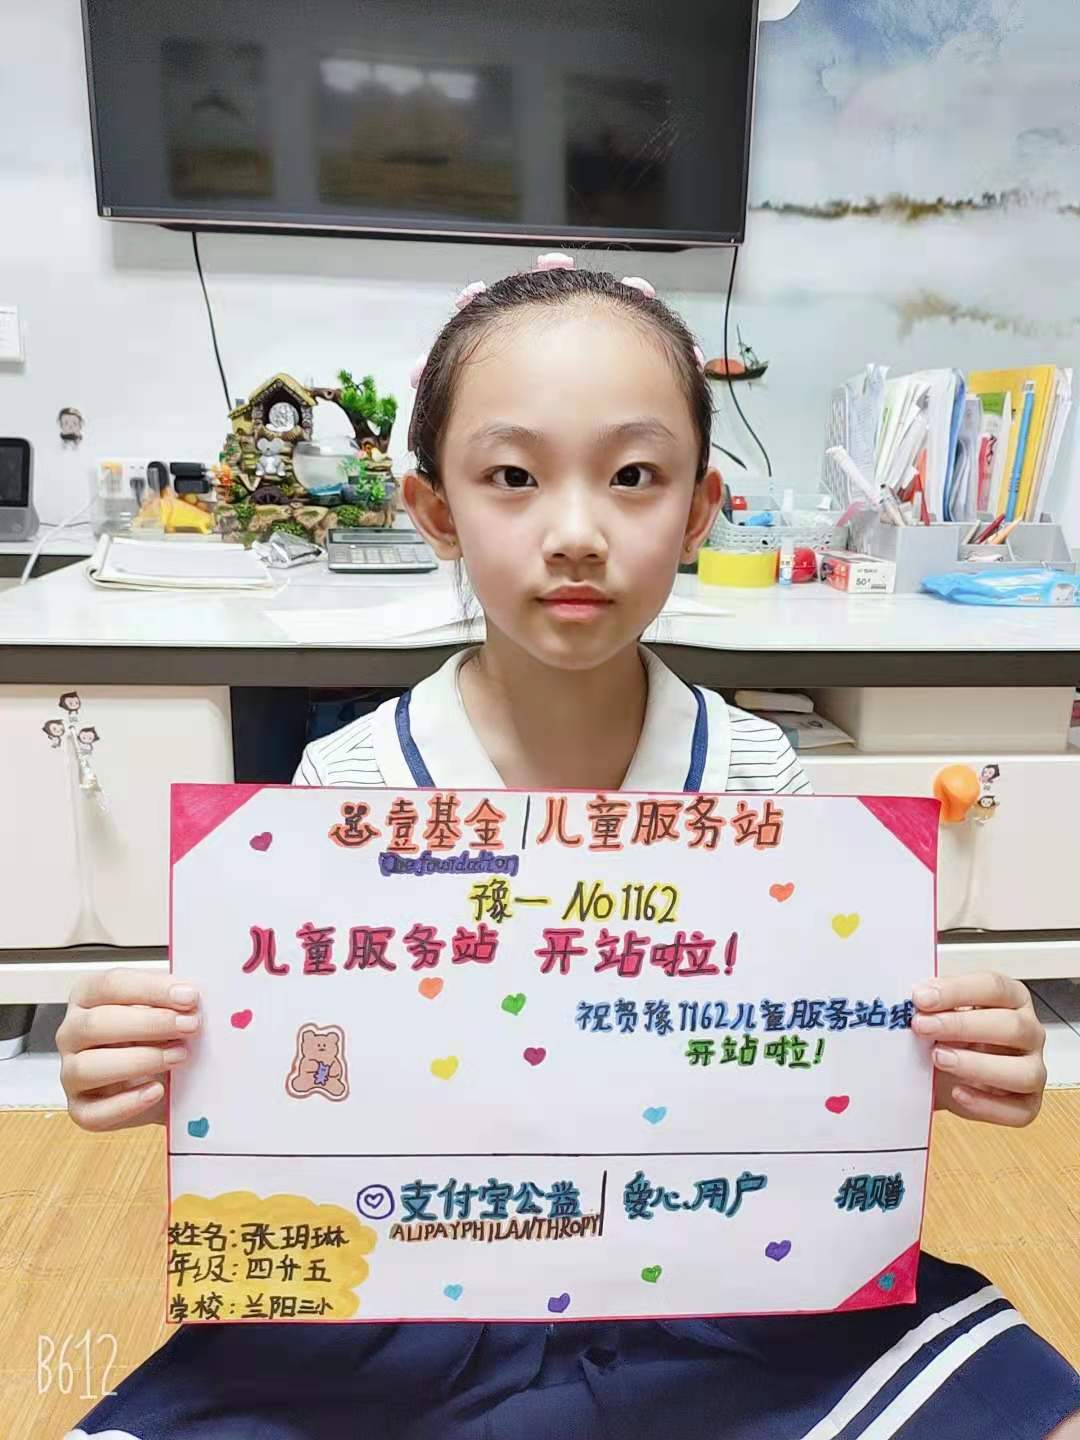 壹基金|儿童服务站
One foundation
豫一No1162
儿童服务站 开站啦!
祝贺豫1162儿童服务站线
开站啦!
支付宝公益|爱心用户 捐赠
ALIPAYPHILANTHROPY
姓名:张玥琳
年级:四升五
学校:兰阳三小
B612